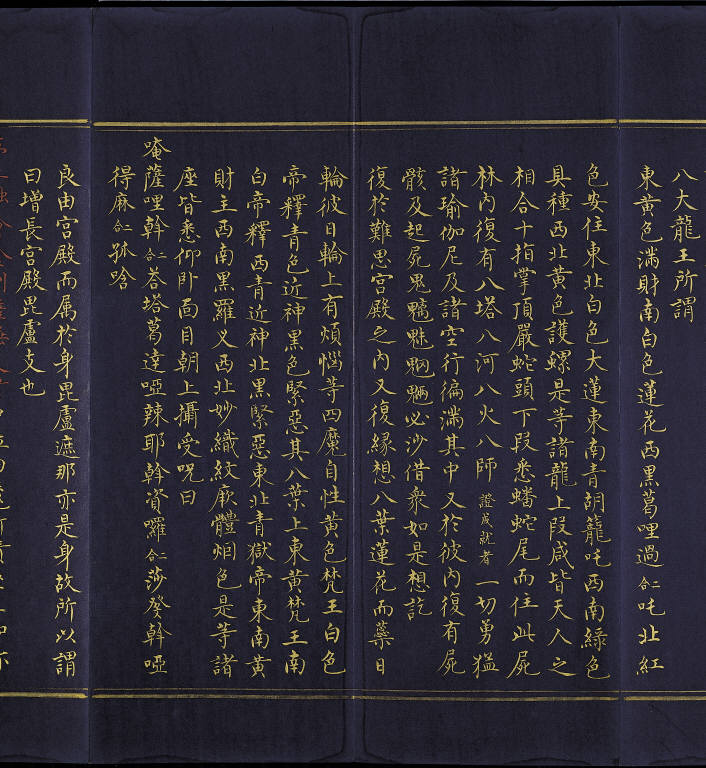 八大龍王所謂
東黃色滿財南白色蓮花西黑葛哩過合仁吒北紅
色安住東北白色大蓮東南青胡籠吒西南綠色
具種西北黃色護螺是等諸龍上段咸皆天人之
相合十指掌頂嚴蛇頭下段悉蟠蛇尾而住此屍
林內復有八塔八河八火八師證成就者一切勇猛
諸瑜伽尼及諸空行徧滿其中又於彼內復有屍
骸及起屍鬼魑魅魍魎必沙借衆如是想訖
復於難思宮殿之內又復緣想八葉蓮花而蘂日
輪彼日輪上有煩惱等四魔自性黃色梵王白色
帝釋青色近神黑色緊惡其八葉上東黃梵王南
白帝釋西青近神北黑緊惡東北青獄帝東南黃
財主西南黑羅义西北妙織紋厥體烟色是等諸
座皆悉仰卧面目朝上攝受呪曰
唵薩哩斡合仁荅塔葛達啞辣耶斡資囉合仁莎癸斡啞
得麻合仁孤啥
良由宮殿而属於身毘盧遮那亦是身故所以謂
曰增長宮殿毘盧支也